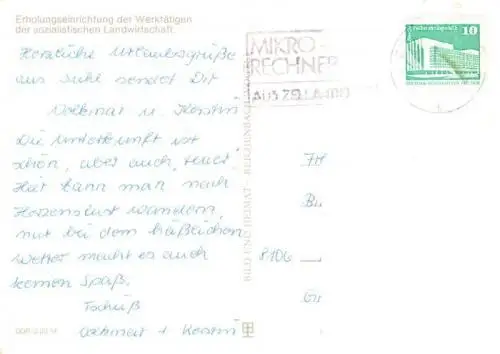 Erholungseinrichtung der Werktätigen
der sozialistischen Landwirtschaft
Herzliche Urlaubsgrüße
aus Suhl sendet Dir
Volkmar u. Kerstin
Die Unterkunft ist
schön, aber auch teuer.
Hier kann man nach
Herzenslust wandern,
nur bei dem häßlichen
Wetter macht es auch
keinen Spaß.
Tschüß
Volkmar + Kerstin
BILD UND HEIMAT REICHENBACH
MIKRO-
RECHNER
AUS ZELLA-
10
8106